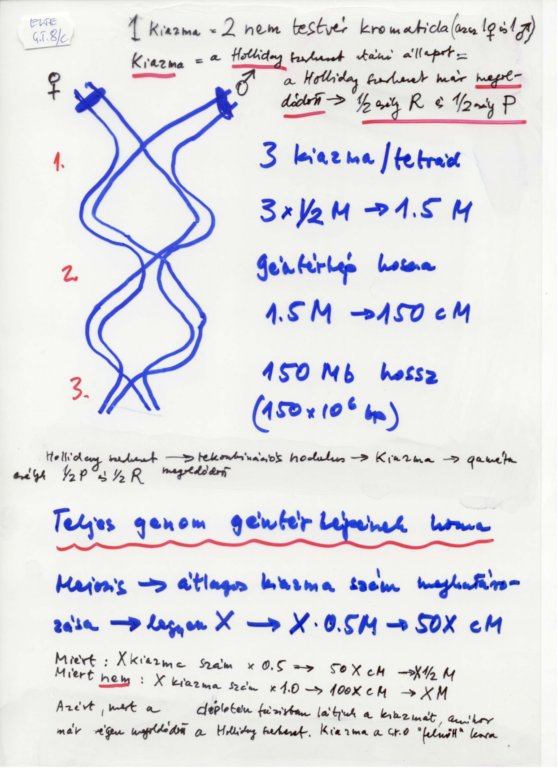 ELTE
G.I. 8/c
1 Kiazma = 2 nem testvér kromatida (azaz 1♀ és 1♂)
Kiazma = a Holliday szerkezet utáni állapot =
a Holliday szerkezet már megol-
dódott → 1/2 esély R és 1/2 esély P
♀ ♂
1.
3 kiazma/tetrád
3 × 1/2 M → 1.5 M
2.
géntérkép hossza
1.5 M → 150 cM
3.
150 Mb hossz
(150 × 10⁶ bp)
Holliday szerkezet → rekombinációs nodulus → Kiazma → gaméta
esélye 1/2 P és 1/2 R megoldódott
Teljes genom géntérképeinek hossza
Meiosis → átlagos kiazma szám meghatáro-
zása → legyen X → X · 0.5M → 50X cM
Miért : X kiazma szám × 0.5 → 50X cM → X 1/2 M
Miért nem : X kiazma szám × 1.0 → 100X cM → XM
Azért, mert a diplotén fázisban látjuk a kiazmát, amikor
már régen megoldódott a Holliday szerkezet. Kiazma a c.o. "felnőtt" kora